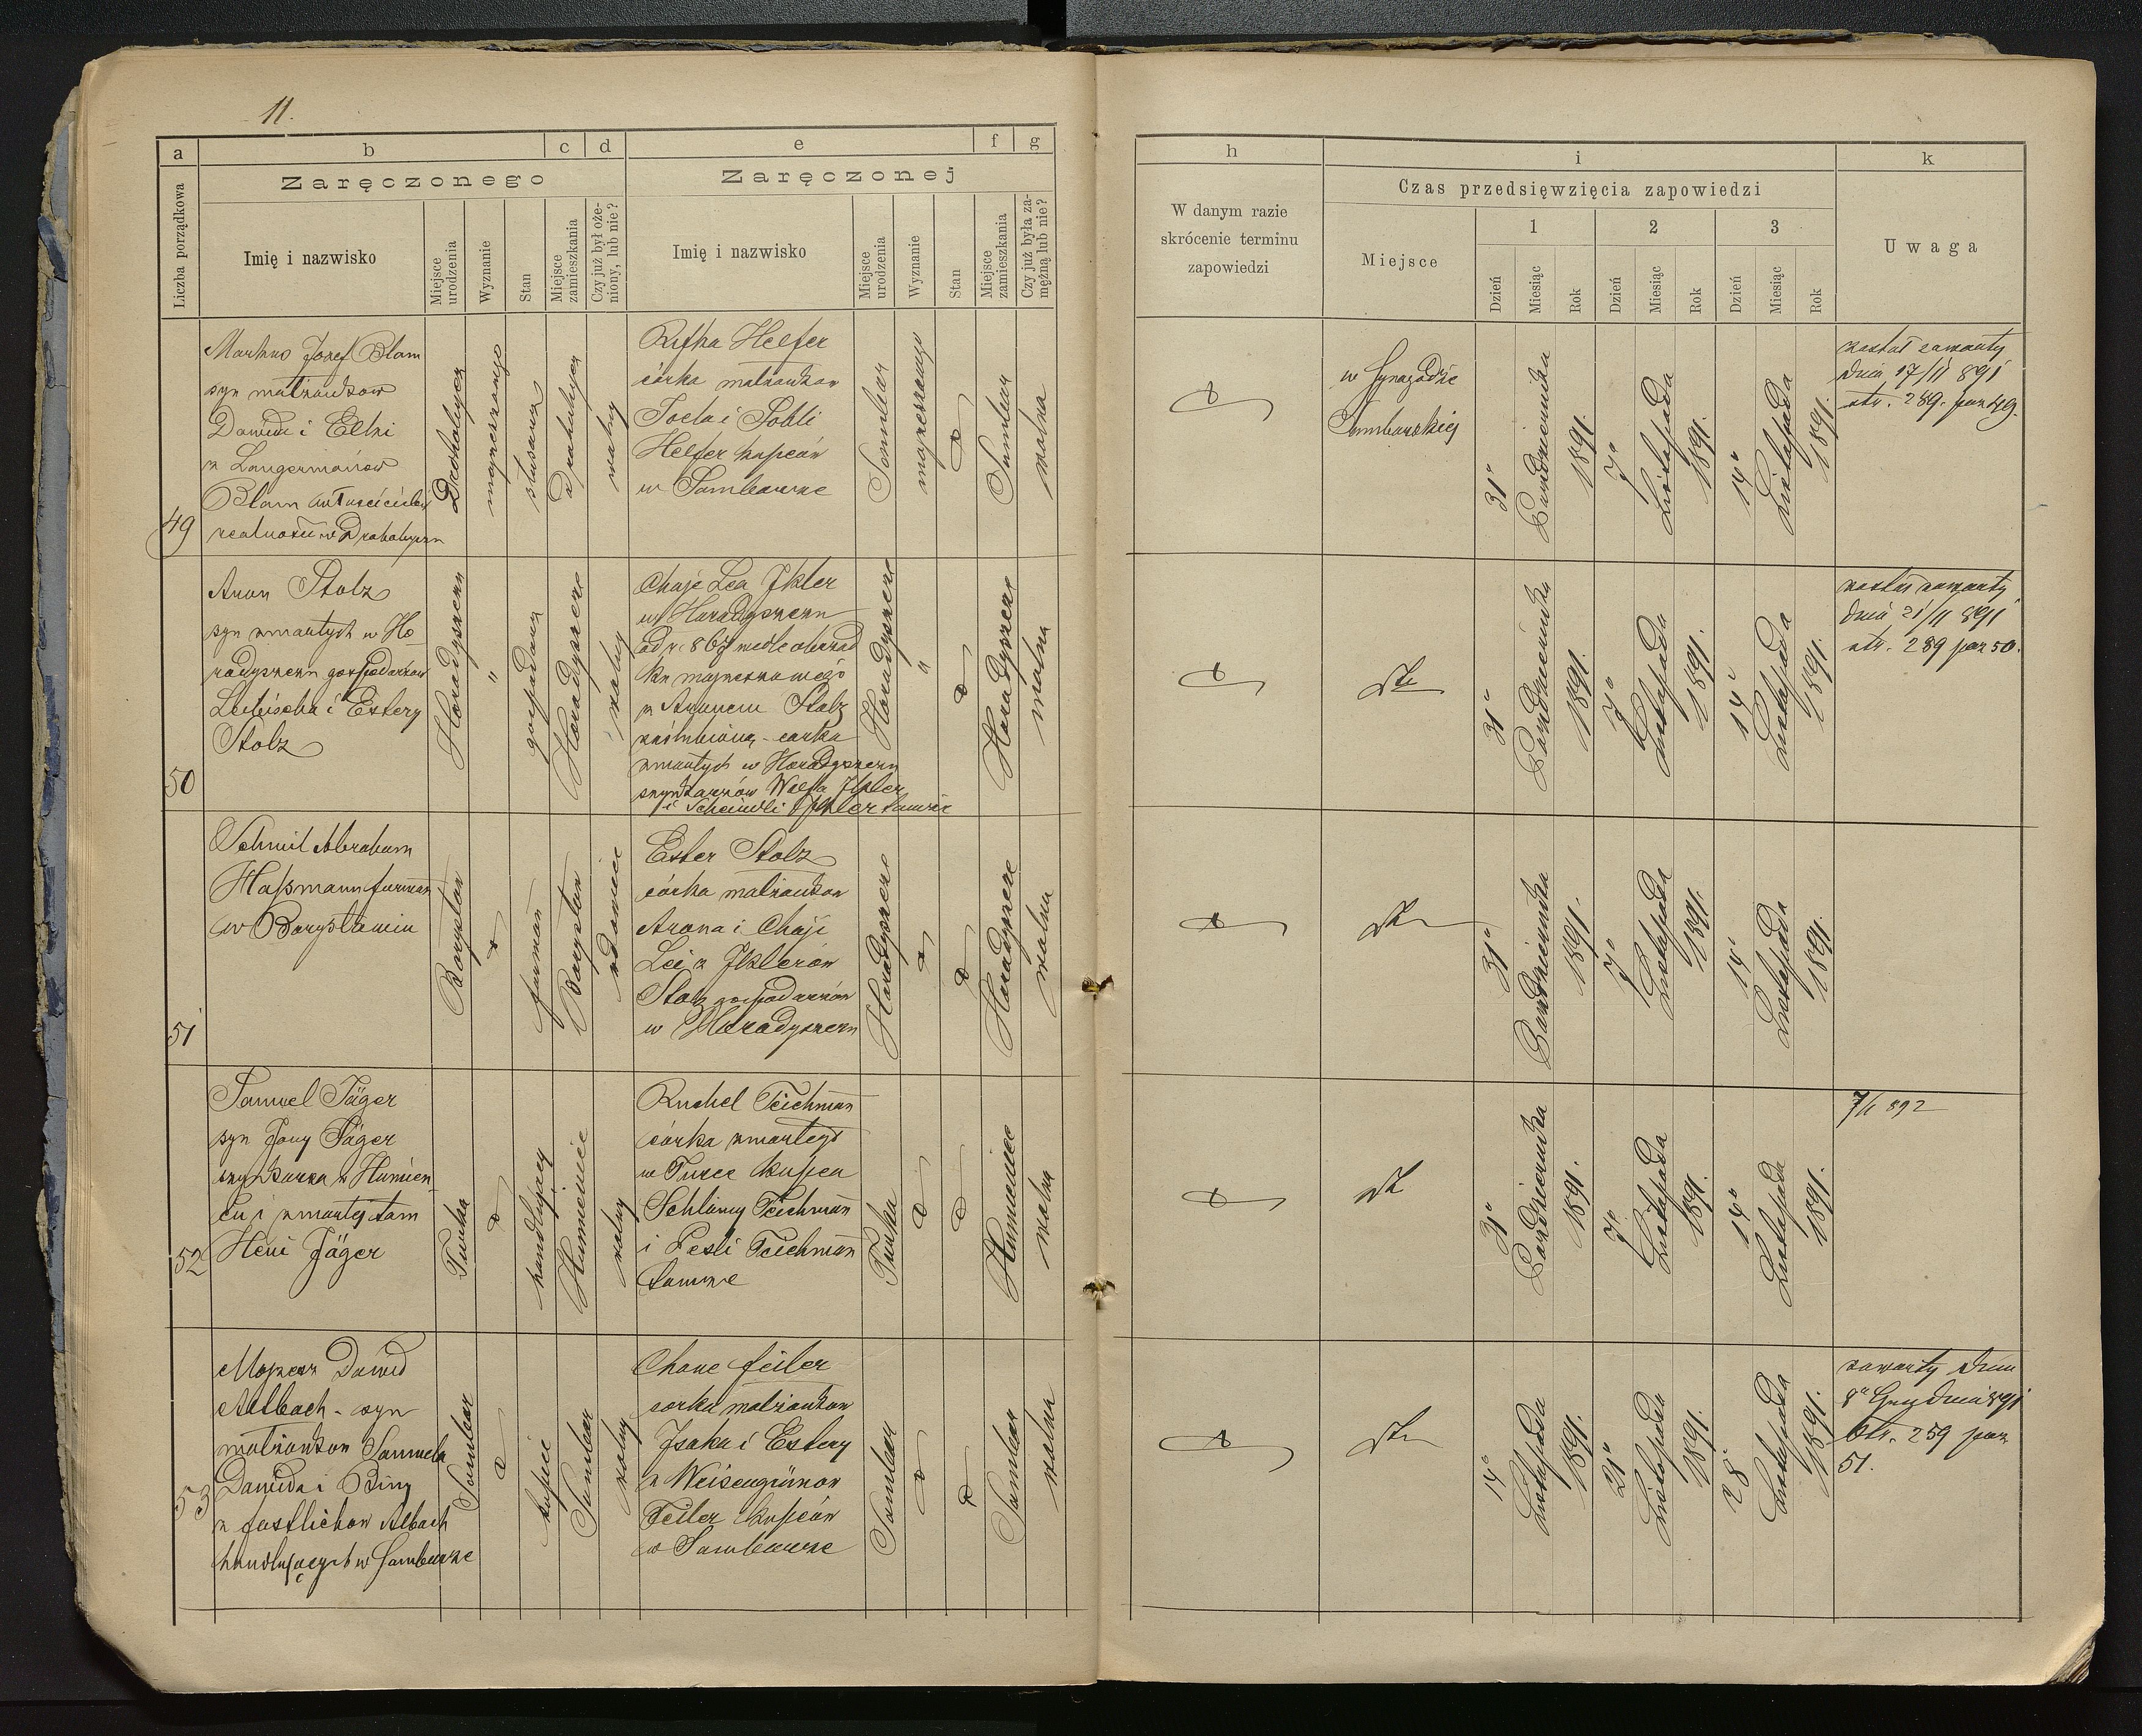 11.
a
b
c
d
e
f
g
Liczba porządkowa
Zaręczonego
Zaręczonej
Imię i nazwisko
Miejsce urodzenia
Wyznanie
Stan
Miejsce zamieszkania
Czy już był ożeniony, lub nie?
Imię i nazwisko
Miejsce urodzenia
Wyznanie
Stan
Miejsce zamieszkania
Czy już była zamężną lub nie?
h
i
k
W danym razie
skrócenie terminu
zapowiedzi
Czas przedsięwzięcia zapowiedzi
Miejsce
1
2
3
Dzień
Miesiąc
Rok
Dzień
Miesiąc
Rok
Dzień
Miesiąc
Rok
Uwaga
49
Markus Josef Blam
syn małżonków
Dawida i Elki
z Langermanów
Blam właścicieli
realności w Drohobyczu
Drohobycz
mojżeszowego
Drohobycz
wolny
Rifka Helfer
córka małżonków
Joela i
Helfer kupców
w Samborze
Sambor
mojżeszowego
Sambor
wolna
w Synagodze
Samborskiej
31°
Października
1891.
7°
Listopada
1891.
14°
Listopada
1891.
został zawarty
dnia 17/11 891
str. 289. poz 49.
50
Aron Stolz
syn zmarłych w Ho
radyszczu gospodarzów
Leibischa i Estery
Stolz
Horadyszcze
"
gospodarz
Horadyszcze
wolny
Chaje Lea Ikler
w Horadyszczu
od r. 867 wedle obrząd
ku mojżeszowego
z Aronem Stolz
zaślubiona, - córka
zmarłych w Horadyszczu
szynkarzów Wolfa Ikler
i Scheindli Ikler tamże
Horadyszcze
"
Horadyszcze
wolna
31°
Października
1891.
7°
Listopada
1891.
14°
Listopada
1891.
został zawarty
dnia 21/11 891
str. 289 poz 50.
51
Schmil Abraham
Haßmann furman
w Borysławiu
Borysław
furman
Borysław
wdowiec
Ester Stolz
córka małżonków
Arona i Chaji
Lei z Iklerów
Stolz gospodarzów
w Horadyszczu
Horadyszcze
Horadyszcze
wolna
31°
Października
1891.
7°
Listopada
1891.
14°
Listopada
1891.
52
Samuel Jäger
syn Jony Jäger
szynkarza w Humień
cu i zmarłej tam
Heni Jäger
Turka
handlujący
Humieniec
wolny
Ruchel Teichmann
córka zmarłego
w Turce kupca
Schlomy Teichmann
i Pesli Teichmann
tamże
Turka
Humieniec
wolna
31°
Października
1891.
7°
Listopada
1891.
14°
Listopada
1891.
7/1 892
53
Mojżesz Dawid
Allbach - syn
małżonków Samuela
Dawida i Biny
z Fastlichów Albach
handlujących w Samborze
Sambor
kupiec
Sambor
wolny
Chane Feiler
córka małżonków
Isaka i Estery
z Weisengrünów
Feiler kupców
w Samborze
Sambor
Sambor
wolna
14°
Listopada
1891.
21°
Listopada
1891.
28°
Listopada
1891.
zawarty dnia
8° Grudnia 891
str. 259 poz
51.